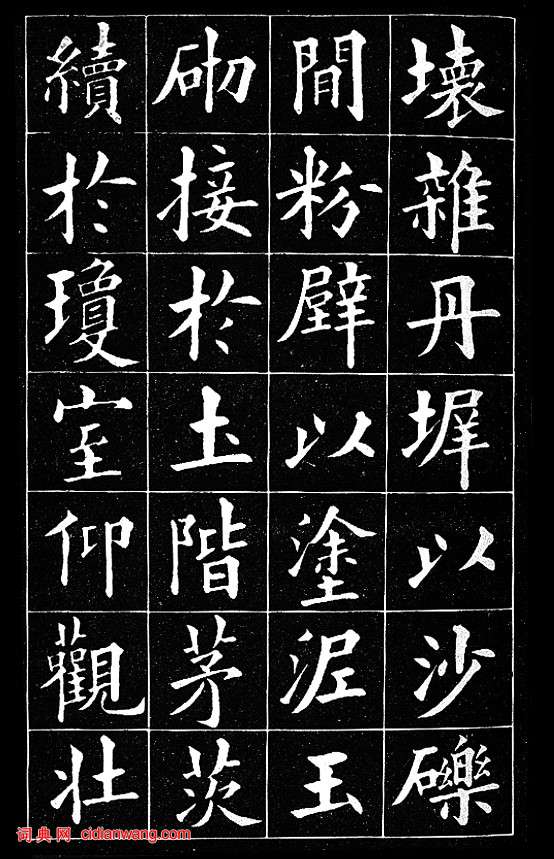 壞雜丹墀以沙礫
間粉壁以塗泥玉
砌接於土階茅茨
續於瓊室仰觀壯
词典网 cidianwang.com